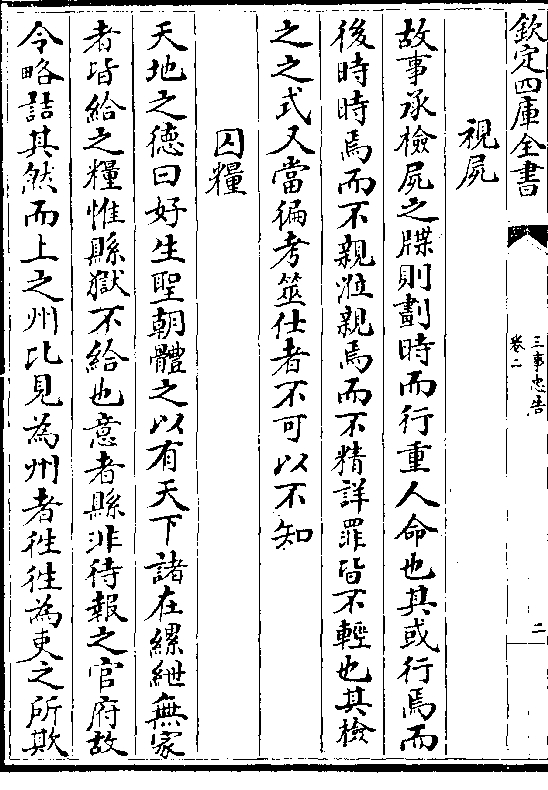 欽定四庫全書
三事忠告
卷二
二
視屍
故事承檢屍之牒則劃時而行重人命也其或行焉而
後時時焉而不親涖親焉而不精詳罪皆不輕也其檢
之之式又當徧考筮仕者不可以不知
囚糧
天地之德曰好生聖朝體之以有天下諸在縲紲無家
者皆給之糧惟縣獄不給也意者縣非待報之官府故
令略詰其然而上之州比見為州者徃徃為吏之所欺